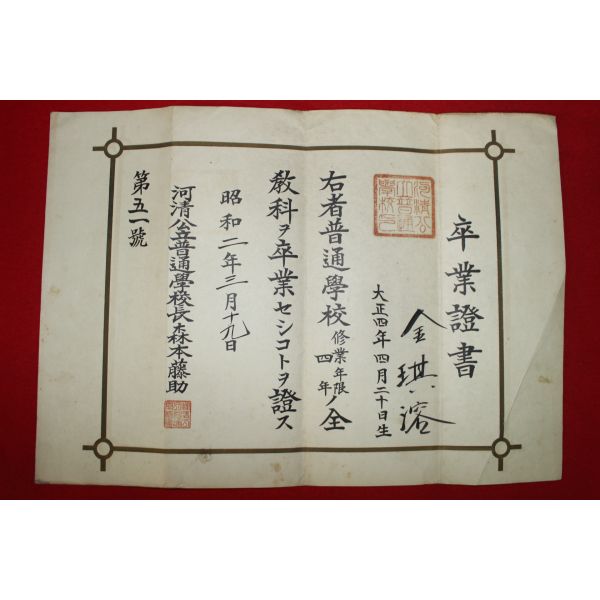 卒業證書
金琪溶
大正四年四月二十日生
右者普通學校修業年限四年ノ全
教科ヲ卒業セシコトヲ證ス
昭和二年三月十九日
河清公立普通學校長森本藤助
第五一號
河清公
立普通
學校印